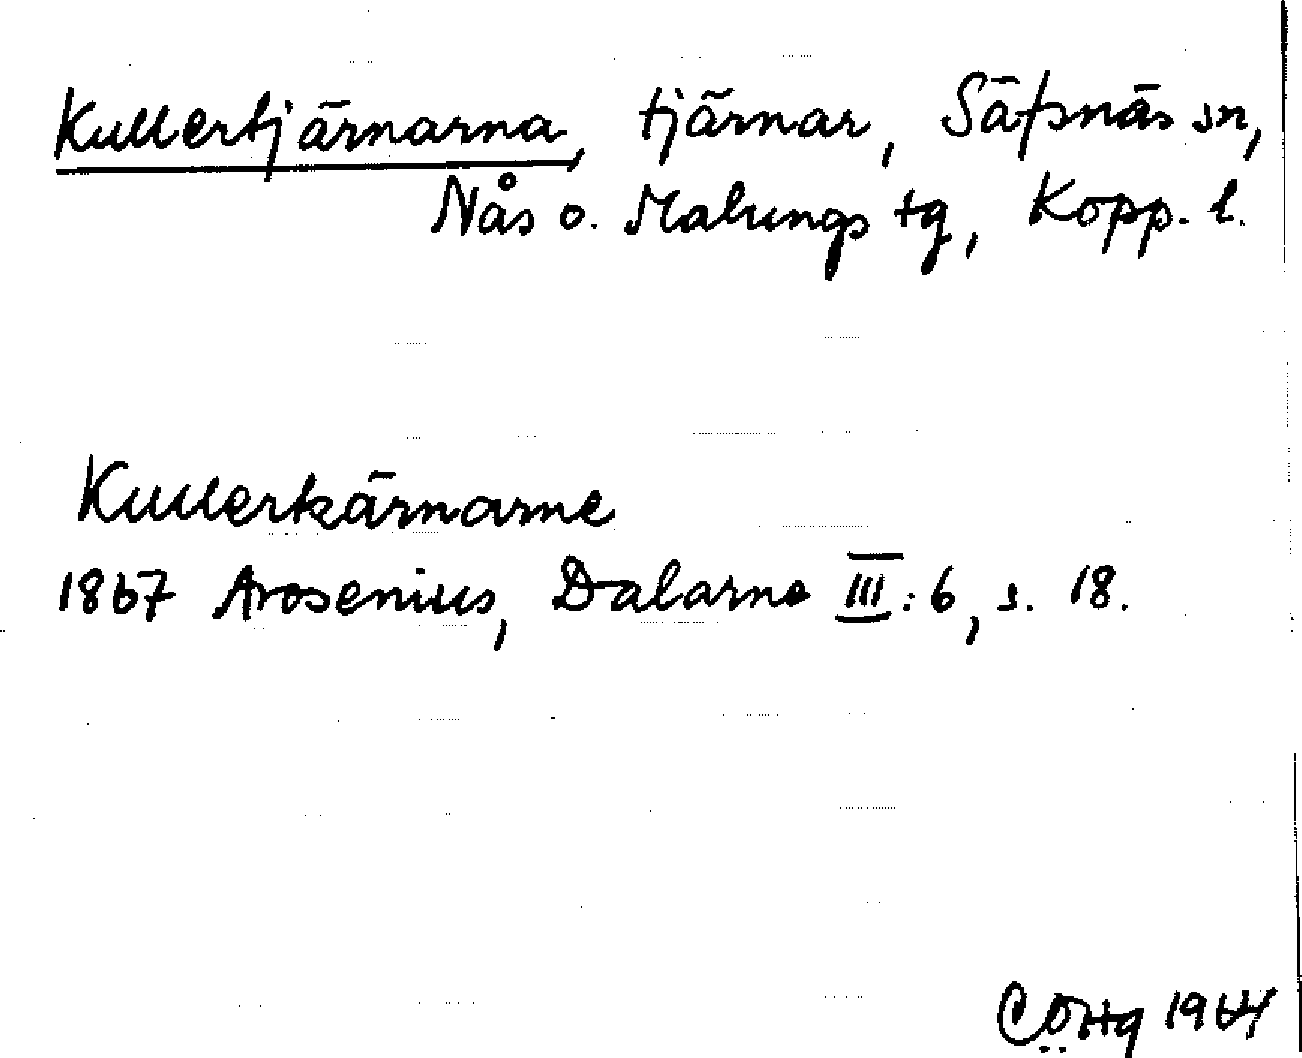 Kullertjärnarna, tjärnar, Säfsnäs sn,
Nås o. Malungs tg, Kopp. l.
Kullerkärnarne
1867 Arosenius, Dalarne III:6, s. 18.
1964